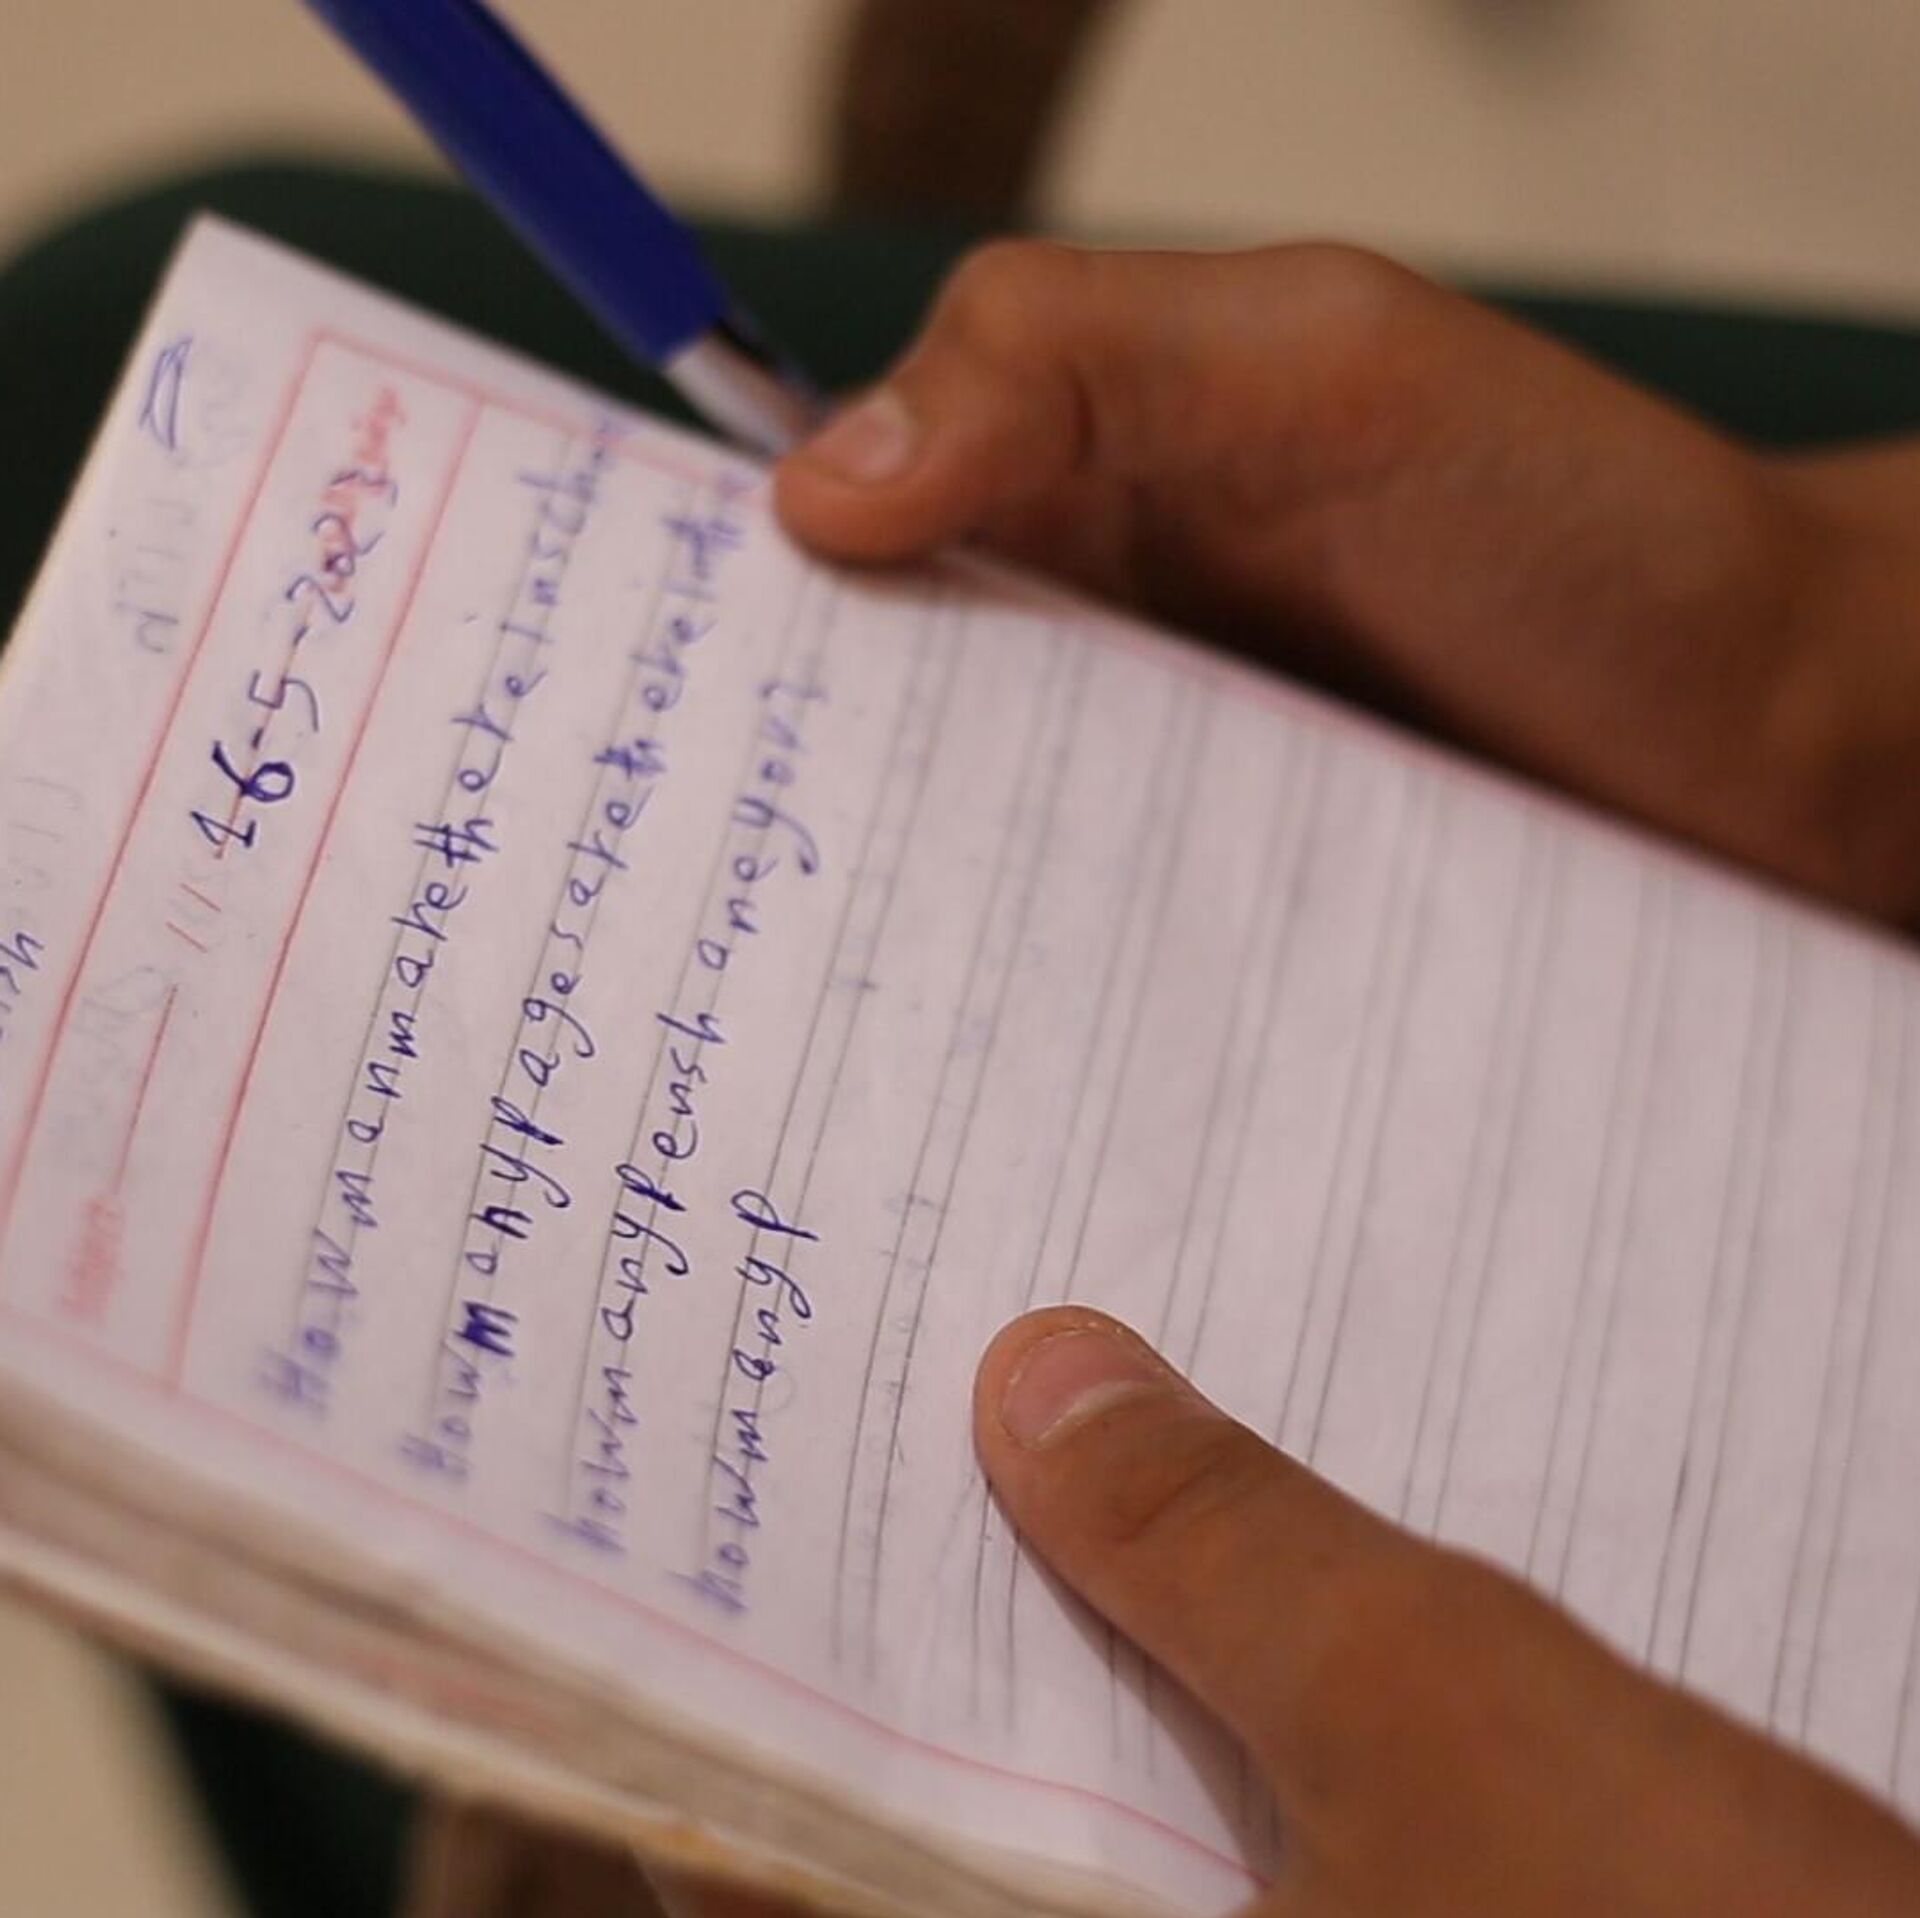 16-5-2023
Howmanmaretherei
Howmanypagesarethere
howmanypenshaneyour
howmanyp